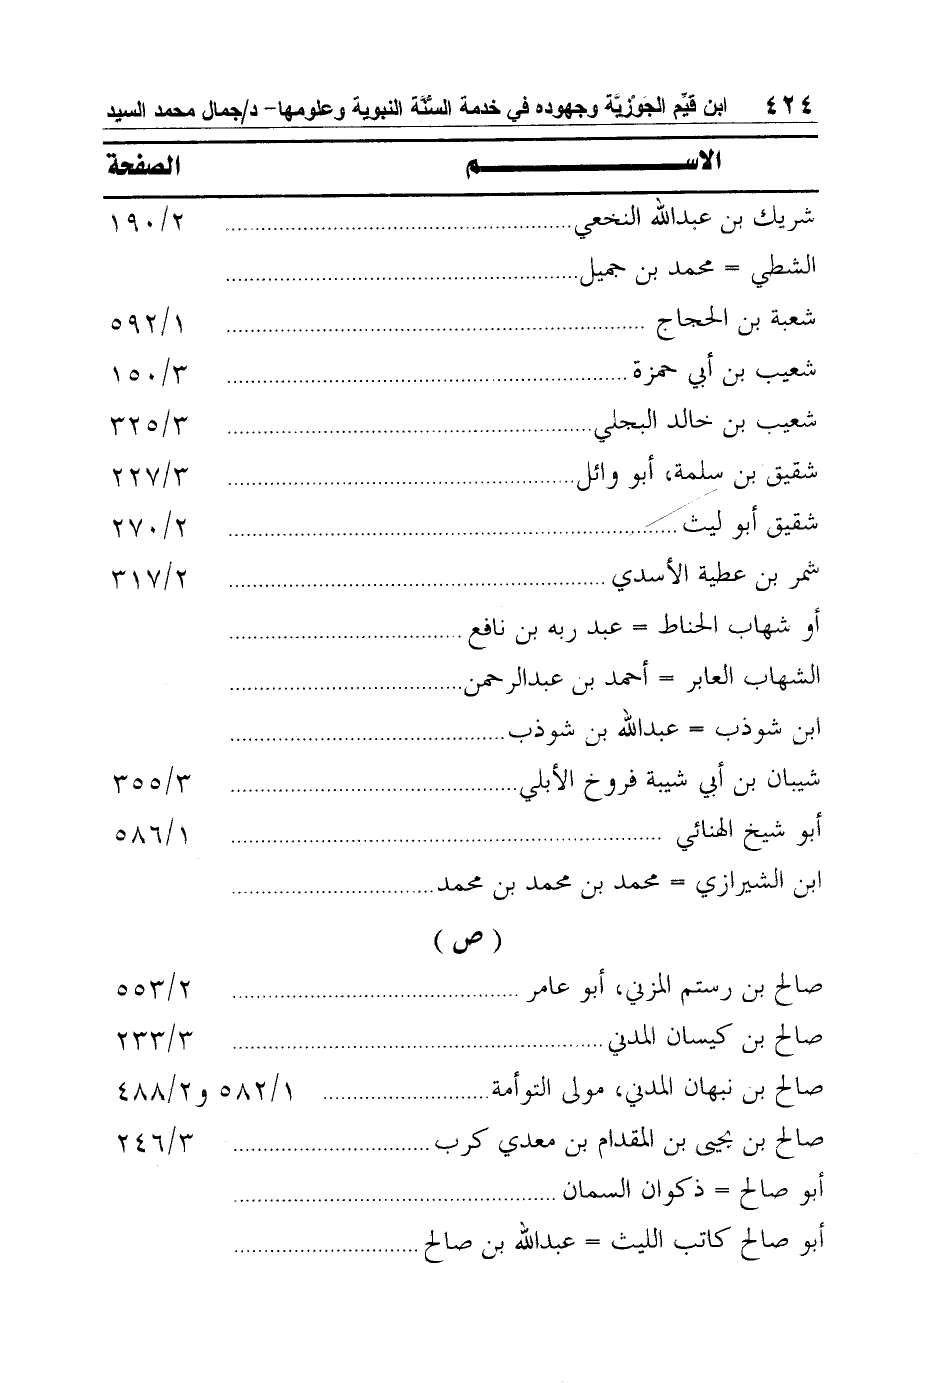 ٤٢٤ ابن قيِّم الجَوْزيَّة وجهوده في خدمة السنَّة النبوية وعلومها- د/جمال محمد السيد
الاســــــــم الصفحة
شريك بن عبدالله النخعي ........ ١٩٠/٢
الشطي = محمد بن جميل ........
شعبة بن الحجاج ........ ٥٩٢/١
شعيب بن أبي حمزة ........ ١٥٠/٣
شعيب بن خالد البجلي ........ ٣٢٥/٣
شقيق بن سلمة، أبو وائل ........ ٢٢٧/٣
شقيق أبو ليث ........ ٢٧٠/٢
شمر بن عطية الأسدي ........ ٣١٧/٢
أو شهاب الحناط = عبد ربه بن نافع ........
الشهاب العابر = أحمد بن عبدالرحمن ........
ابن شوذب = عبدالله بن شوذب ........
شيبان بن أبي شيبة فروخ الأبلي ........ ٣٥٥/٣
أبو شيخ الهنائي ........ ٥٨٦/١
ابن الشيرازي = محمد بن محمد بن محمد ........
( ص )
صالح بن رستم المزني، أبو عامر ........ ٥٥٣/٢
صالح بن كيسان المدني ........ ٢٣٣/٣
صالح بن نبهان المدني، مولى التوأمة ........ ٥٨٢/١ و٤٨٨/٢
صالح بن يحيى بن المقدام بن معدي كرب ........ ٢٤٦/٣
أبو صالح = ذكوان السمان ........
أبو صالح كاتب الليث = عبدالله بن صالح ........